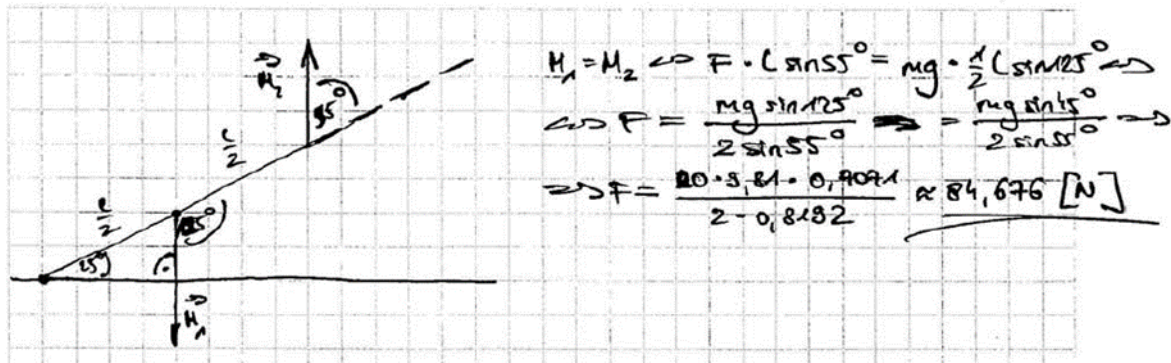 M⃗₂
l/2
l/2
M⃗₁
M₁ = M₂ ⇔ F · l sin55° = mg · ½ l sin125° ⇔
⇔ F = mg sin125° / 2 sin55° = mg sin45° / 2 sin55° ⇒
⇒ F = 20 · 9,81 · 0,7071 / 2 · 0,8192 ≈ 84,676 [N]